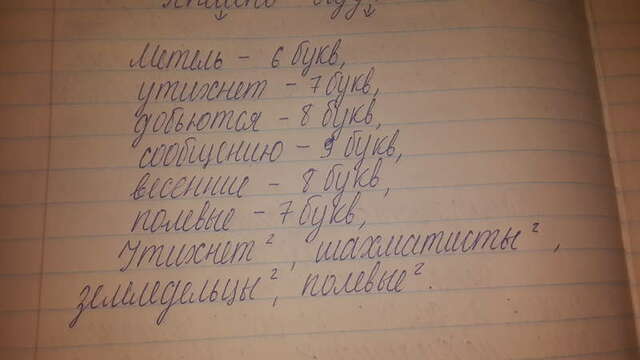 Метель – 6 букв,
утихнет – 7 букв,
добьются – 8 букв,
сообщению – 9 букв,
весенние – 8 букв,
полевые – 7 букв,
Утихнет², шахматисты²,
земледельцы², полевые².